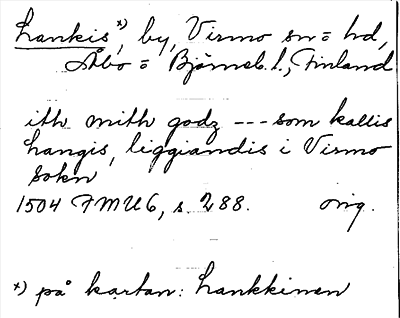 Hankis *), by, Virmo sn = hd,
Åbo = Björneb. l., Finland
ith mith godz --- som kallis
hangis, liggiandis i Virmo
sokn
1504 FMU 6, s. 288. orig.
*) på kartan: Hankkinen